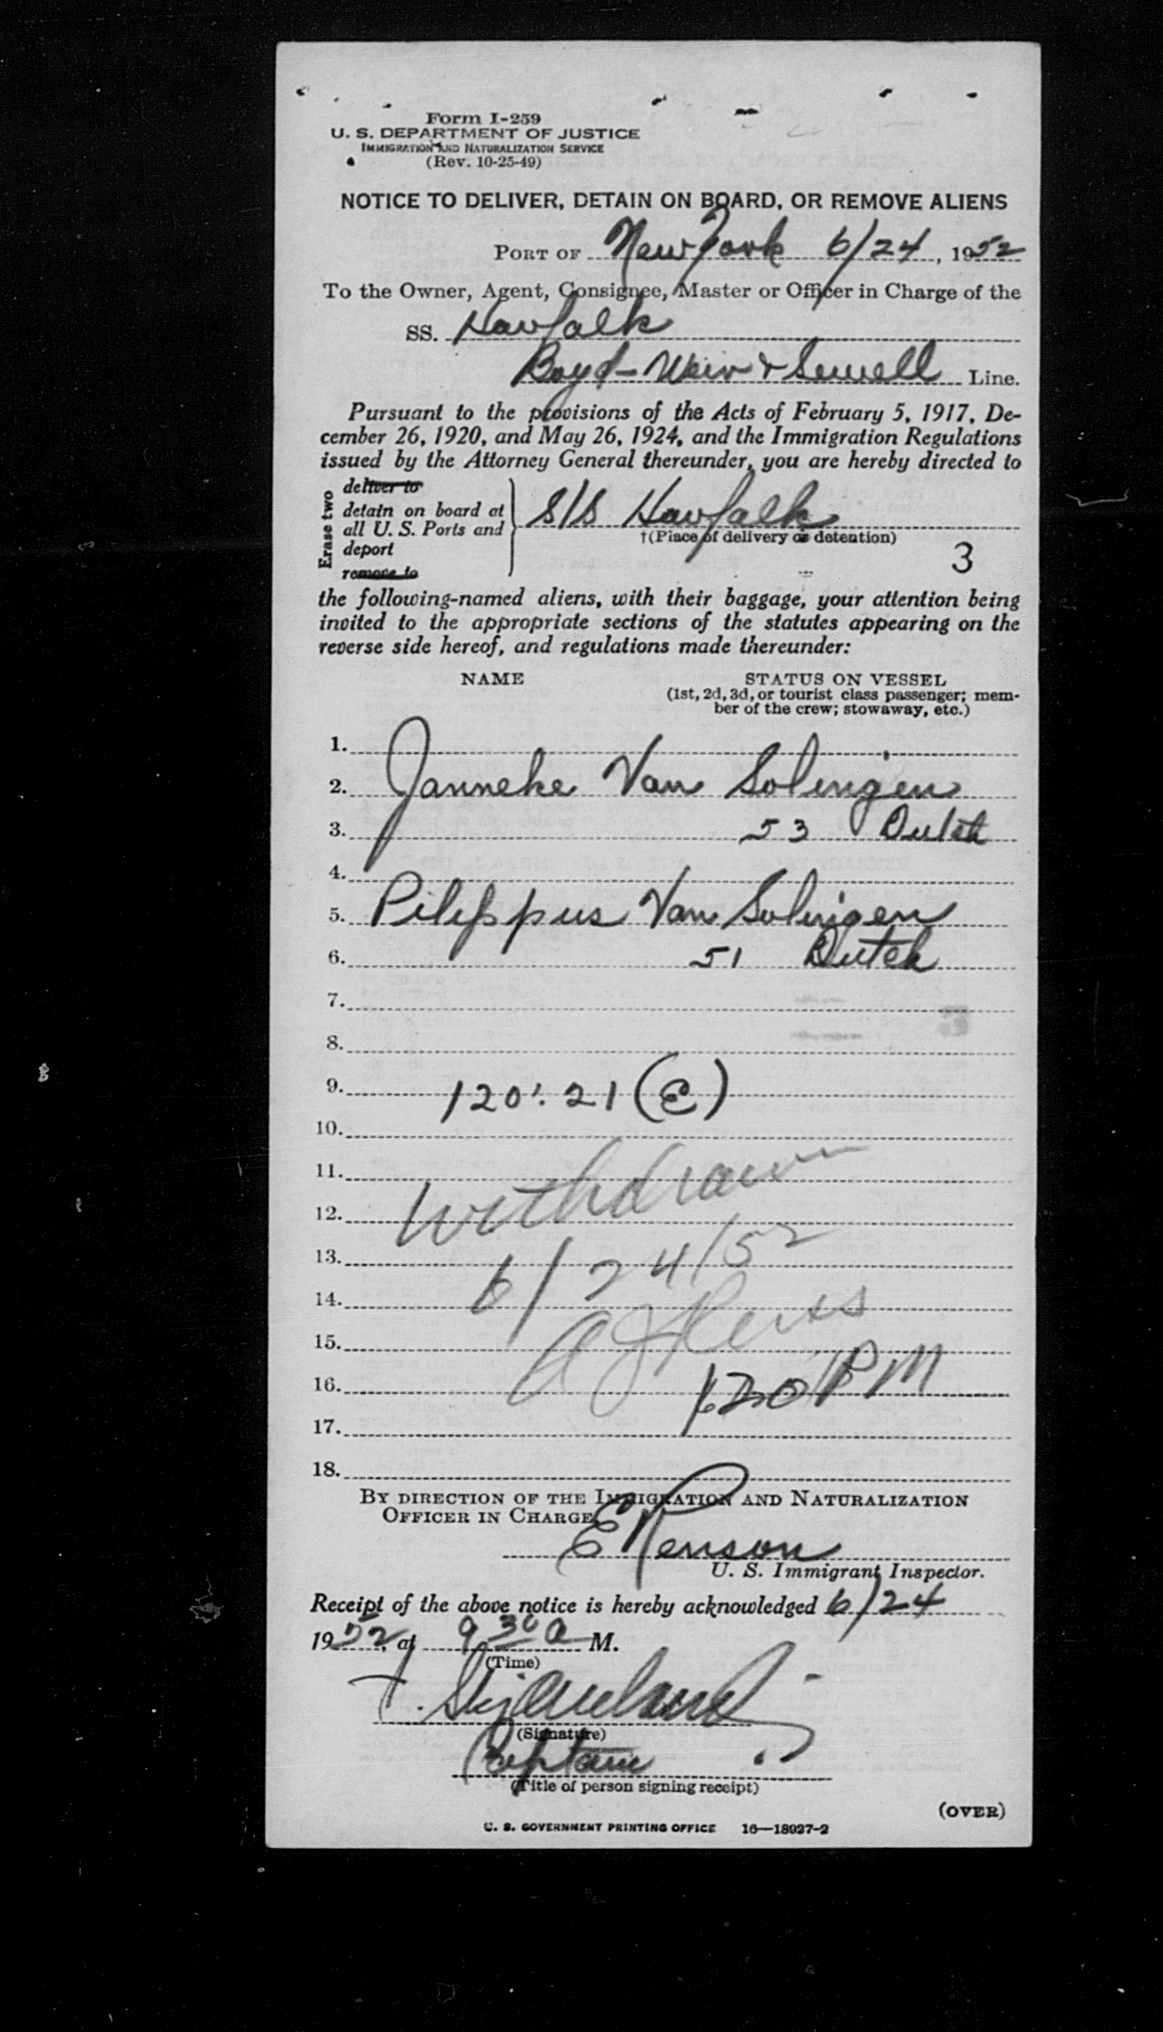 Form I-259
U. S. DEPARTMENT OF JUSTICE
IMMIGRATION AND NATURALIZATION SERVICE
(Rev. 10-25-49)
NOTICE TO DELIVER, DETAIN ON BOARD, OR REMOVE ALIENS
PORT OF New York 6/24, 1952
To the Owner, Agent, Consignee, Master or Officer in Charge of the
SS. Havfalk
Boyd-Weir & Sewell Line.
Pursuant to the provisions of the Acts of February 5, 1917, De-
cember 26, 1920, and May 26, 1924, and the Immigration Regulations
issued by the Attorney General thereunder, you are hereby directed to
Erase two
deliver to
detain on board at
all U. S. Ports and
deport
remove to
S/S Havfalk
†(Place of delivery or detention)
3
the following-named aliens, with their baggage, your attention being
invited to the appropriate sections of the statutes appearing on the
reverse side hereof, and regulations made thereunder:
NAME STATUS ON VESSEL
(1st, 2d, 3d, or tourist class passenger; mem-
ber of the crew; stowaway, etc.)
1.
2. Janneke Van Solingen
3. 53 Dutch
4.
5. Pileppus Van Solingen
6. 51 Dutch
7.
8.
9. 120:21 (E)
10.
11. Withdrawn
12.
13. 6/24/52
14.
15.
16. 120 PM
17.
18.
BY DIRECTION OF THE IMMIGRATION AND NATURALIZATION
OFFICER IN CHARGE,
E Renson
U. S. Immigrant Inspector.
Receipt of the above notice is hereby acknowledged 6/24
1952, at 9 30 a M.
(Time)
(Signature)
Captain
(Title of person signing receipt)
(OVER)
U. S. GOVERNMENT PRINTING OFFICE 16—18027-2